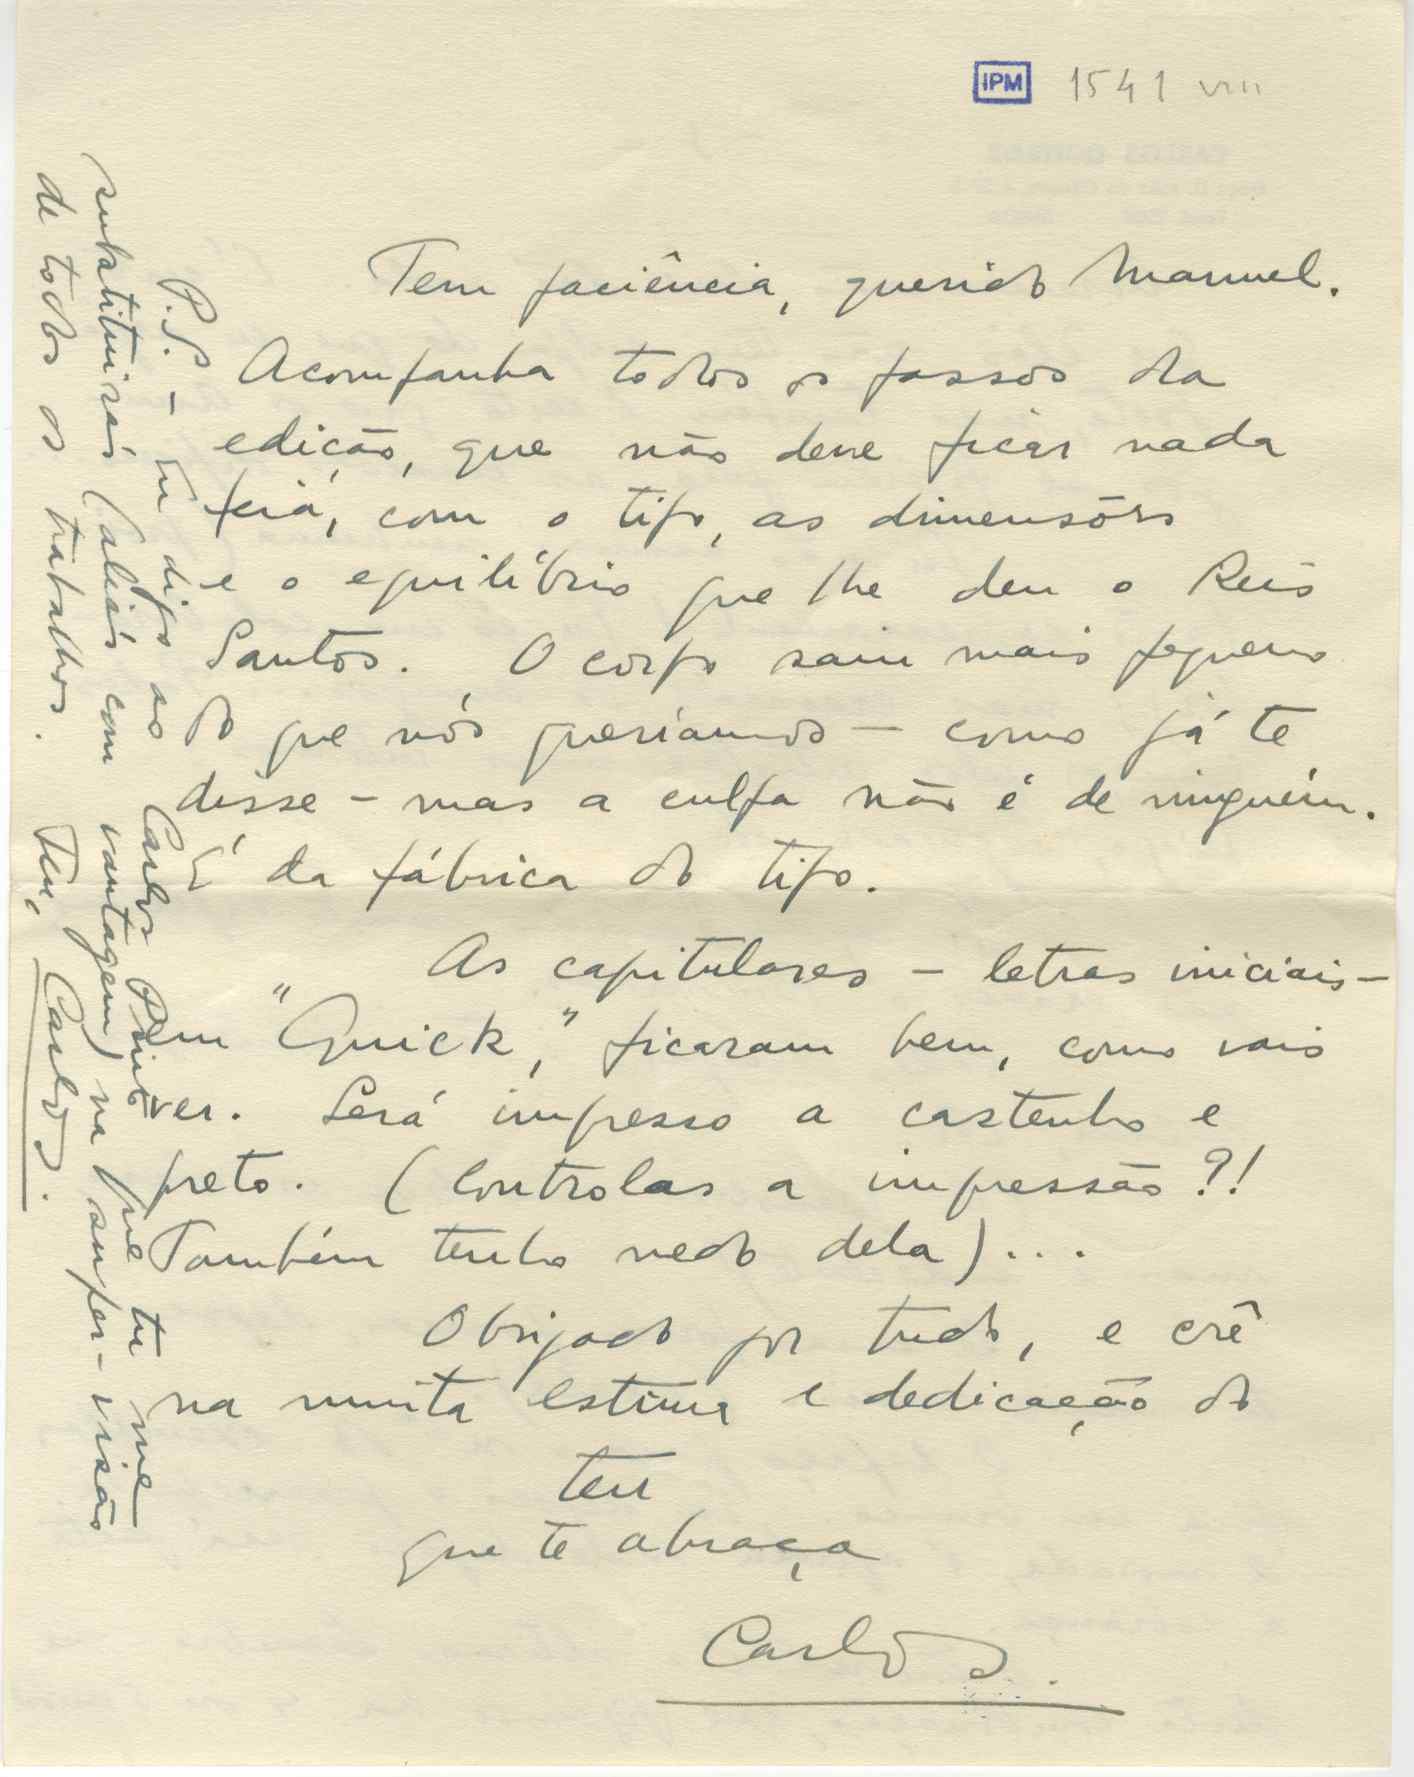 IPM 1541 VIII
Tem paciência, querido Manuel.
Acompanha todos os passos da
edição, que não deve ficar nada
feiá, com o tipo, as dimensões
e o equilíbrio que lhe deu o Reis
Santos. O corpo saiu mais pequeno
do que nós queríamos — como já te
disse — mas a culpa não é de ninguém.
É da fábrica do tipo.
As capitulares — letras iniciais —
em "Quick," ficaram bem, como vais
ver. Será impresso a castanho e
preto. (Controlas a impressão?!
Também tenho medo dela)...
Obrigado por tudo, e crê
na muita estima e dedicação do
teu
que te abraça
Carlos.
P.S. — Eu digo ao Carlos Pinto que tu me
substituirás (aliás com vantagem) na super-visão
de todos os trabalhos. Teu, Carlos.